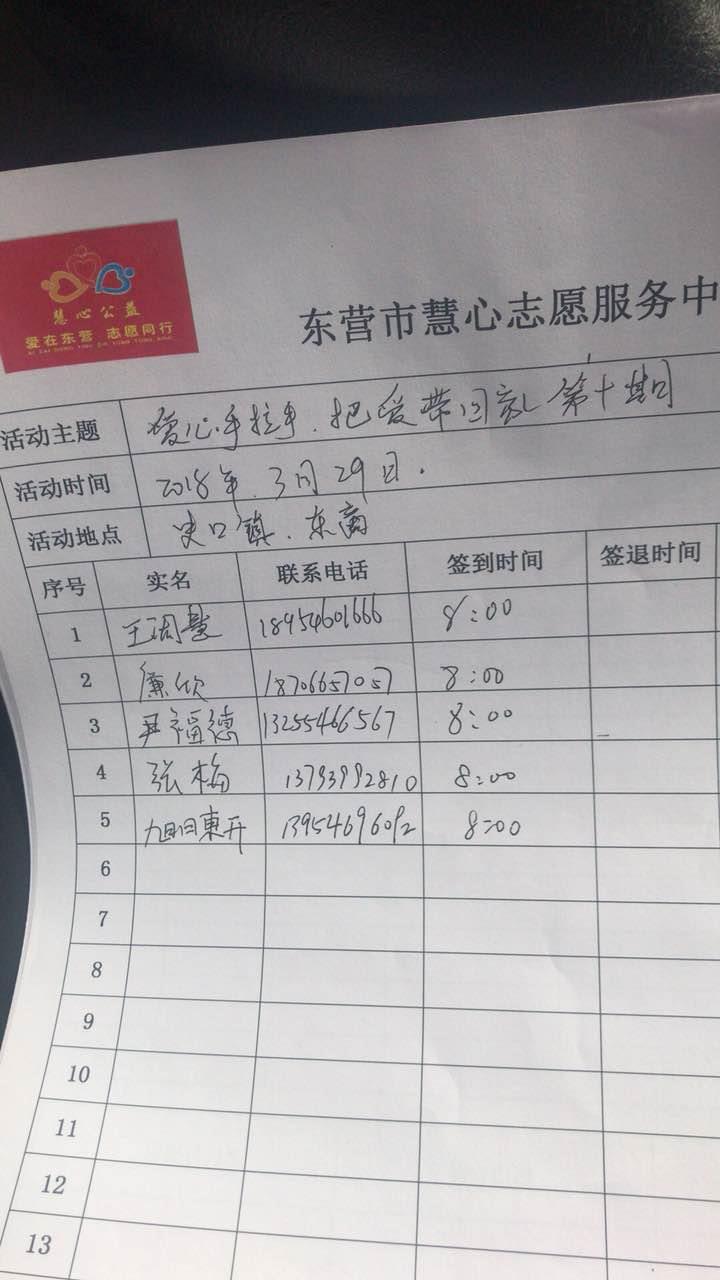 慧心公益
爱在东营 志愿同行
东营市慧心志愿服务中
活动主题 爱心手拉手.把爱带回家 第十期
活动时间 2018年.3月29日.
活动地点 史口镇.东商
序号 实名 联系电话 签到时间 签退时间
1 王 18954601666 8:00
2 廉欣 18706657057 8:00
3 尹福德 13255466567 8:00
4 张梅 13793992810 8:00
5 東开 13954696092 8:00
6
7
8
9
10
11
12
13